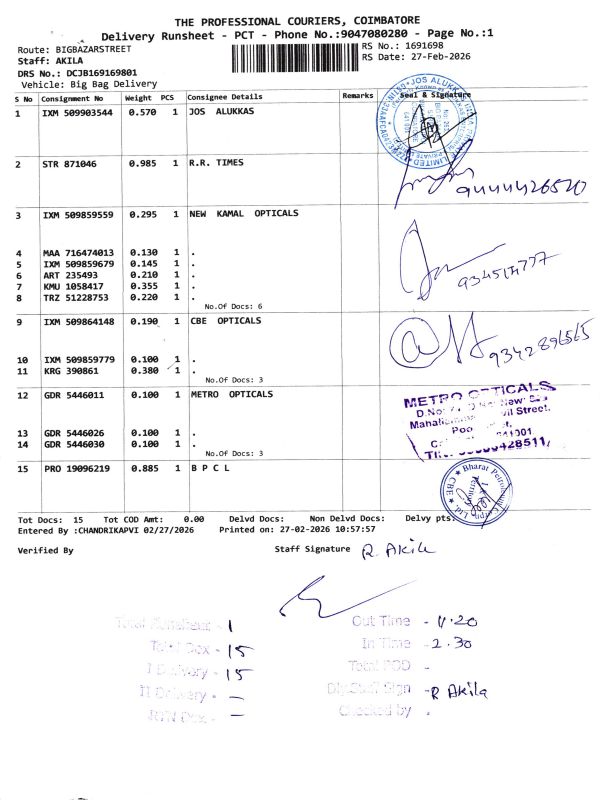 THE PROFESSIONAL COURIERS, COIMBATORE
Delivery Runsheet - PCT - Phone No.:9047080280 - Page No.:1
Route: BIGBAZARSTREET
RS No.: 1691698
Staff: AKILA
RS Date: 27-Feb-2026
DRS No.: DCJB169169801
Vehicle: Big Bag Delivery
S No Consignment No Weight PCS Consignee Details Remarks Seal & Signature
1 IXM 509903544 0.570 1 JOS ALUKKAS
2 STR 871046 0.985 1 R.R. TIMES
9444426520
3 IXM 509859559 0.295 1 NEW KAMAL OPTICALS
4 MAA 716474013 0.130 1 .
5 IXM 509859679 0.145 1 .
6 ART 235493 0.210 1 .
7 KMU 1058417 0.355 1 .
8 TRZ 51228753 0.220 1 .
No.Of Docs: 6
9 IXM 509864148 0.190 1 CBE OPTICALS
9342896565
10 IXM 509859779 0.100 1 .
11 KRG 390861 0.380 1 .
No.Of Docs: 3
12 GDR 5446011 0.100 1 METRO OPTICALS
METRO OPTICALS
D.No:
Street,
13 GDR 5446026 0.100 1 .
14 GDR 5446030 0.100 1 .
No.Of Docs: 3
15 PRO 19096219 0.885 1 B P C L
Bharat CBE
Tot Docs: 15 Tot COD Amt: 0.00 Delvd Docs: Non Delvd Docs: Delvy pts:
Entered By :CHANDRIKAPVI 02/27/2026 Printed on: 27-02-2026 10:57:57
Verified By Staff Signature R. Akila
Total Runsheet - 1 Out Time - 11.20
Total Dox - 15 In Time - 2.30
I Delivery - 15 Total POD -
II Delivery - — Dly.Staff Sign - R Akila
RTN Dox - — Checked by -